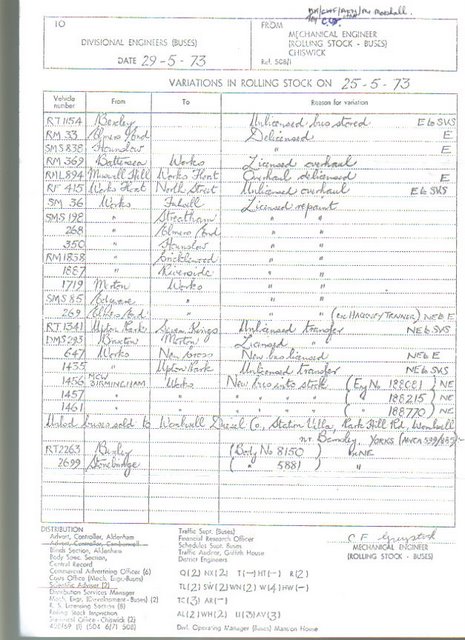 TO
DIVISIONAL ENGINEERS (BUSES)
DATE 29-5-73
FROM
MECHANICAL ENGINEER
(ROLLING STOCK - BUSES)
CHISWICK
Ref. 508/1
VARIATIONS IN ROLLING STOCK ON 25-5-73
Vehicle number From To Reason for variation
RT1154 Bexley Unlicensed bus stored E to SVS
RM 33 Elmers End Delicensed E
SMS 838 Hounslow " E
RM 369 Battersea Works Licensed overhaul
RML894 Muswell Hill Works Float Overhaul delicensed E
RF 415 Works Float North Street Unlicensed overhaul E to SVS
SM 36 Works Fulwell Licensed repaint
SMS 192 " Streatham " "
268 " Elmers End " "
350 " Hounslow " "
RM1858 " Cricklewood " "
1887 " Riverside " "
1719 Merton Works " "
SMS 85 Edgware " " "
269 Elmers End " " " (ex HACKNEY TRAINER) NE to E
RT.1341 Upton Park Seven Kings Unlicensed transfer NE to SVS
DMS 293 Brixton Merton Licensed "
647 Works New Cross New bus licensed NE to E
1435 " Upton Park Unlicensed transfer NE to SVS
1456 MCW BIRMINGHAM Works New bus into stock (Eng No. 188081) NE
1457 " " " " " ( " 188215) NE
1461 " " " " " ( " 188770) NE
Used buses sold to Wombwell Diesel Co, Station Villa, Park Hill Rd, Wombwell
nr. Barnsley, YORKS
RT2263 Bexley (Body No 8150)
2699 Stonebridge ( " 5881 ) "
C F
MECHANICAL ENGINEER
(ROLLING STOCK - BUSES)
DISTRIBUTION
Advert. Controller, Aldenham
Advert. Controller, Camberwell
Blinds Section, Aldenham
Body Spec. Section
Central Record
Commercial Advertising Officer (6)
Copts Office (Mech. Engr-Buses)
Scientific Adviser (2)
Distribution Services Manager
Mech. Engr. (Development-Buses) (2)
R. S. Licensing Section (8)
Rolling Stock Inspection
Technical Office - Chiswick (2)
Traffic Supt. (Buses)
Financial Research Officer
Schedules Supt. Buses
Traffic Auditor, Griffith House
District Engineers
Q(2) NX(2) T(-) HT(-) R(2)
TL(2) SW(2) WN(2) W(4) HW(-)
TC(3) AR(-)
AL(2) WH(2) U(3) AV(3)
Divl. Operating Manager (Buses) Mansion House